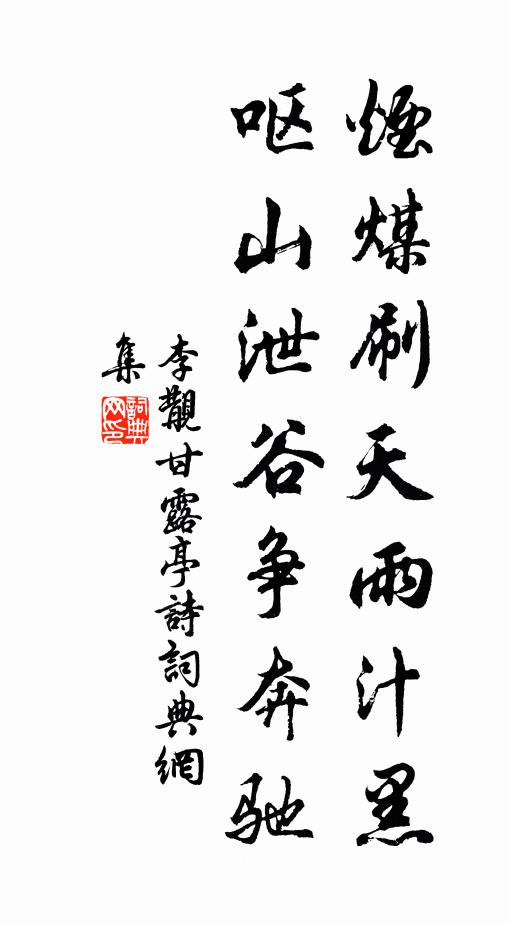 煙煤刷天雨汁黑
呕山泄谷争奔驰
李觀甘露亭詩詞典網
集
詞典網印